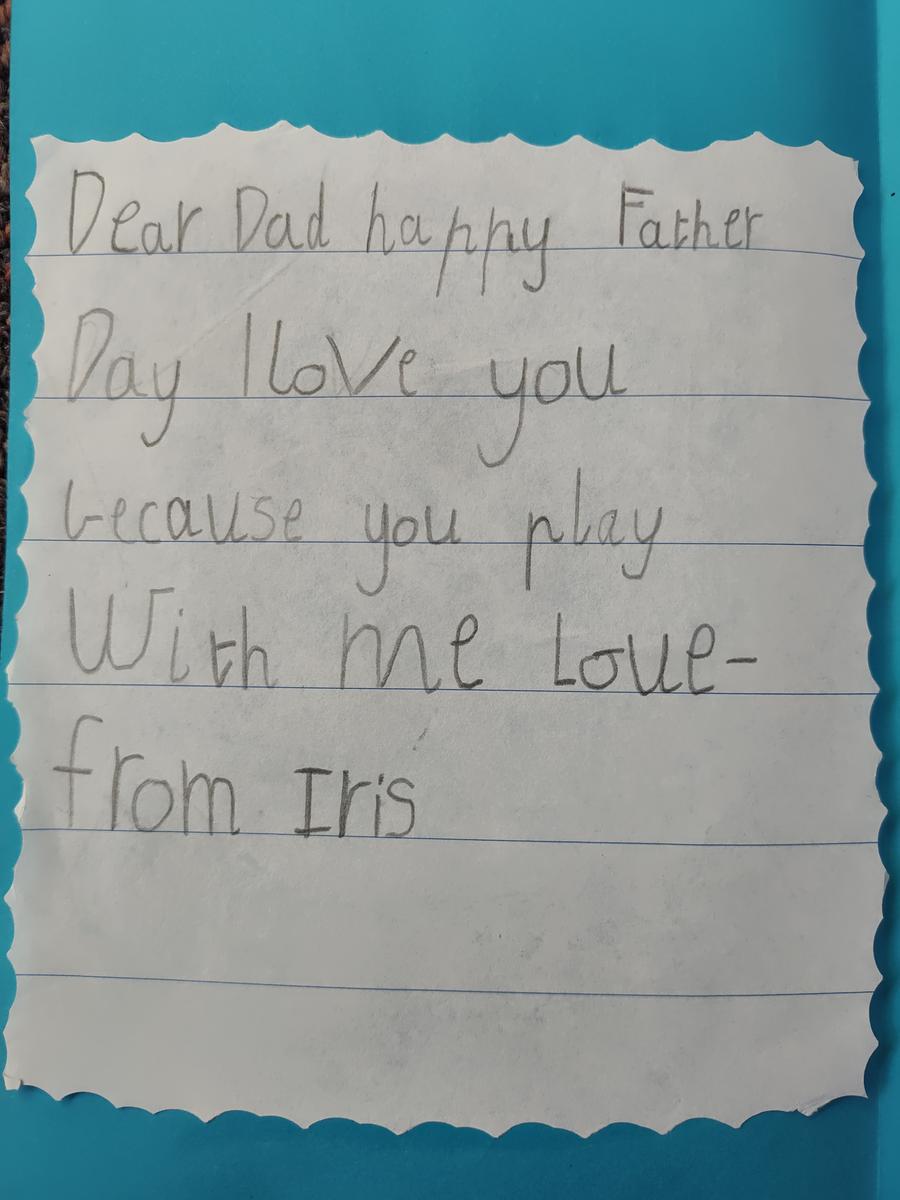 Dear Dad happy Father
Day I love you
because you play
With me Love-
from Iris